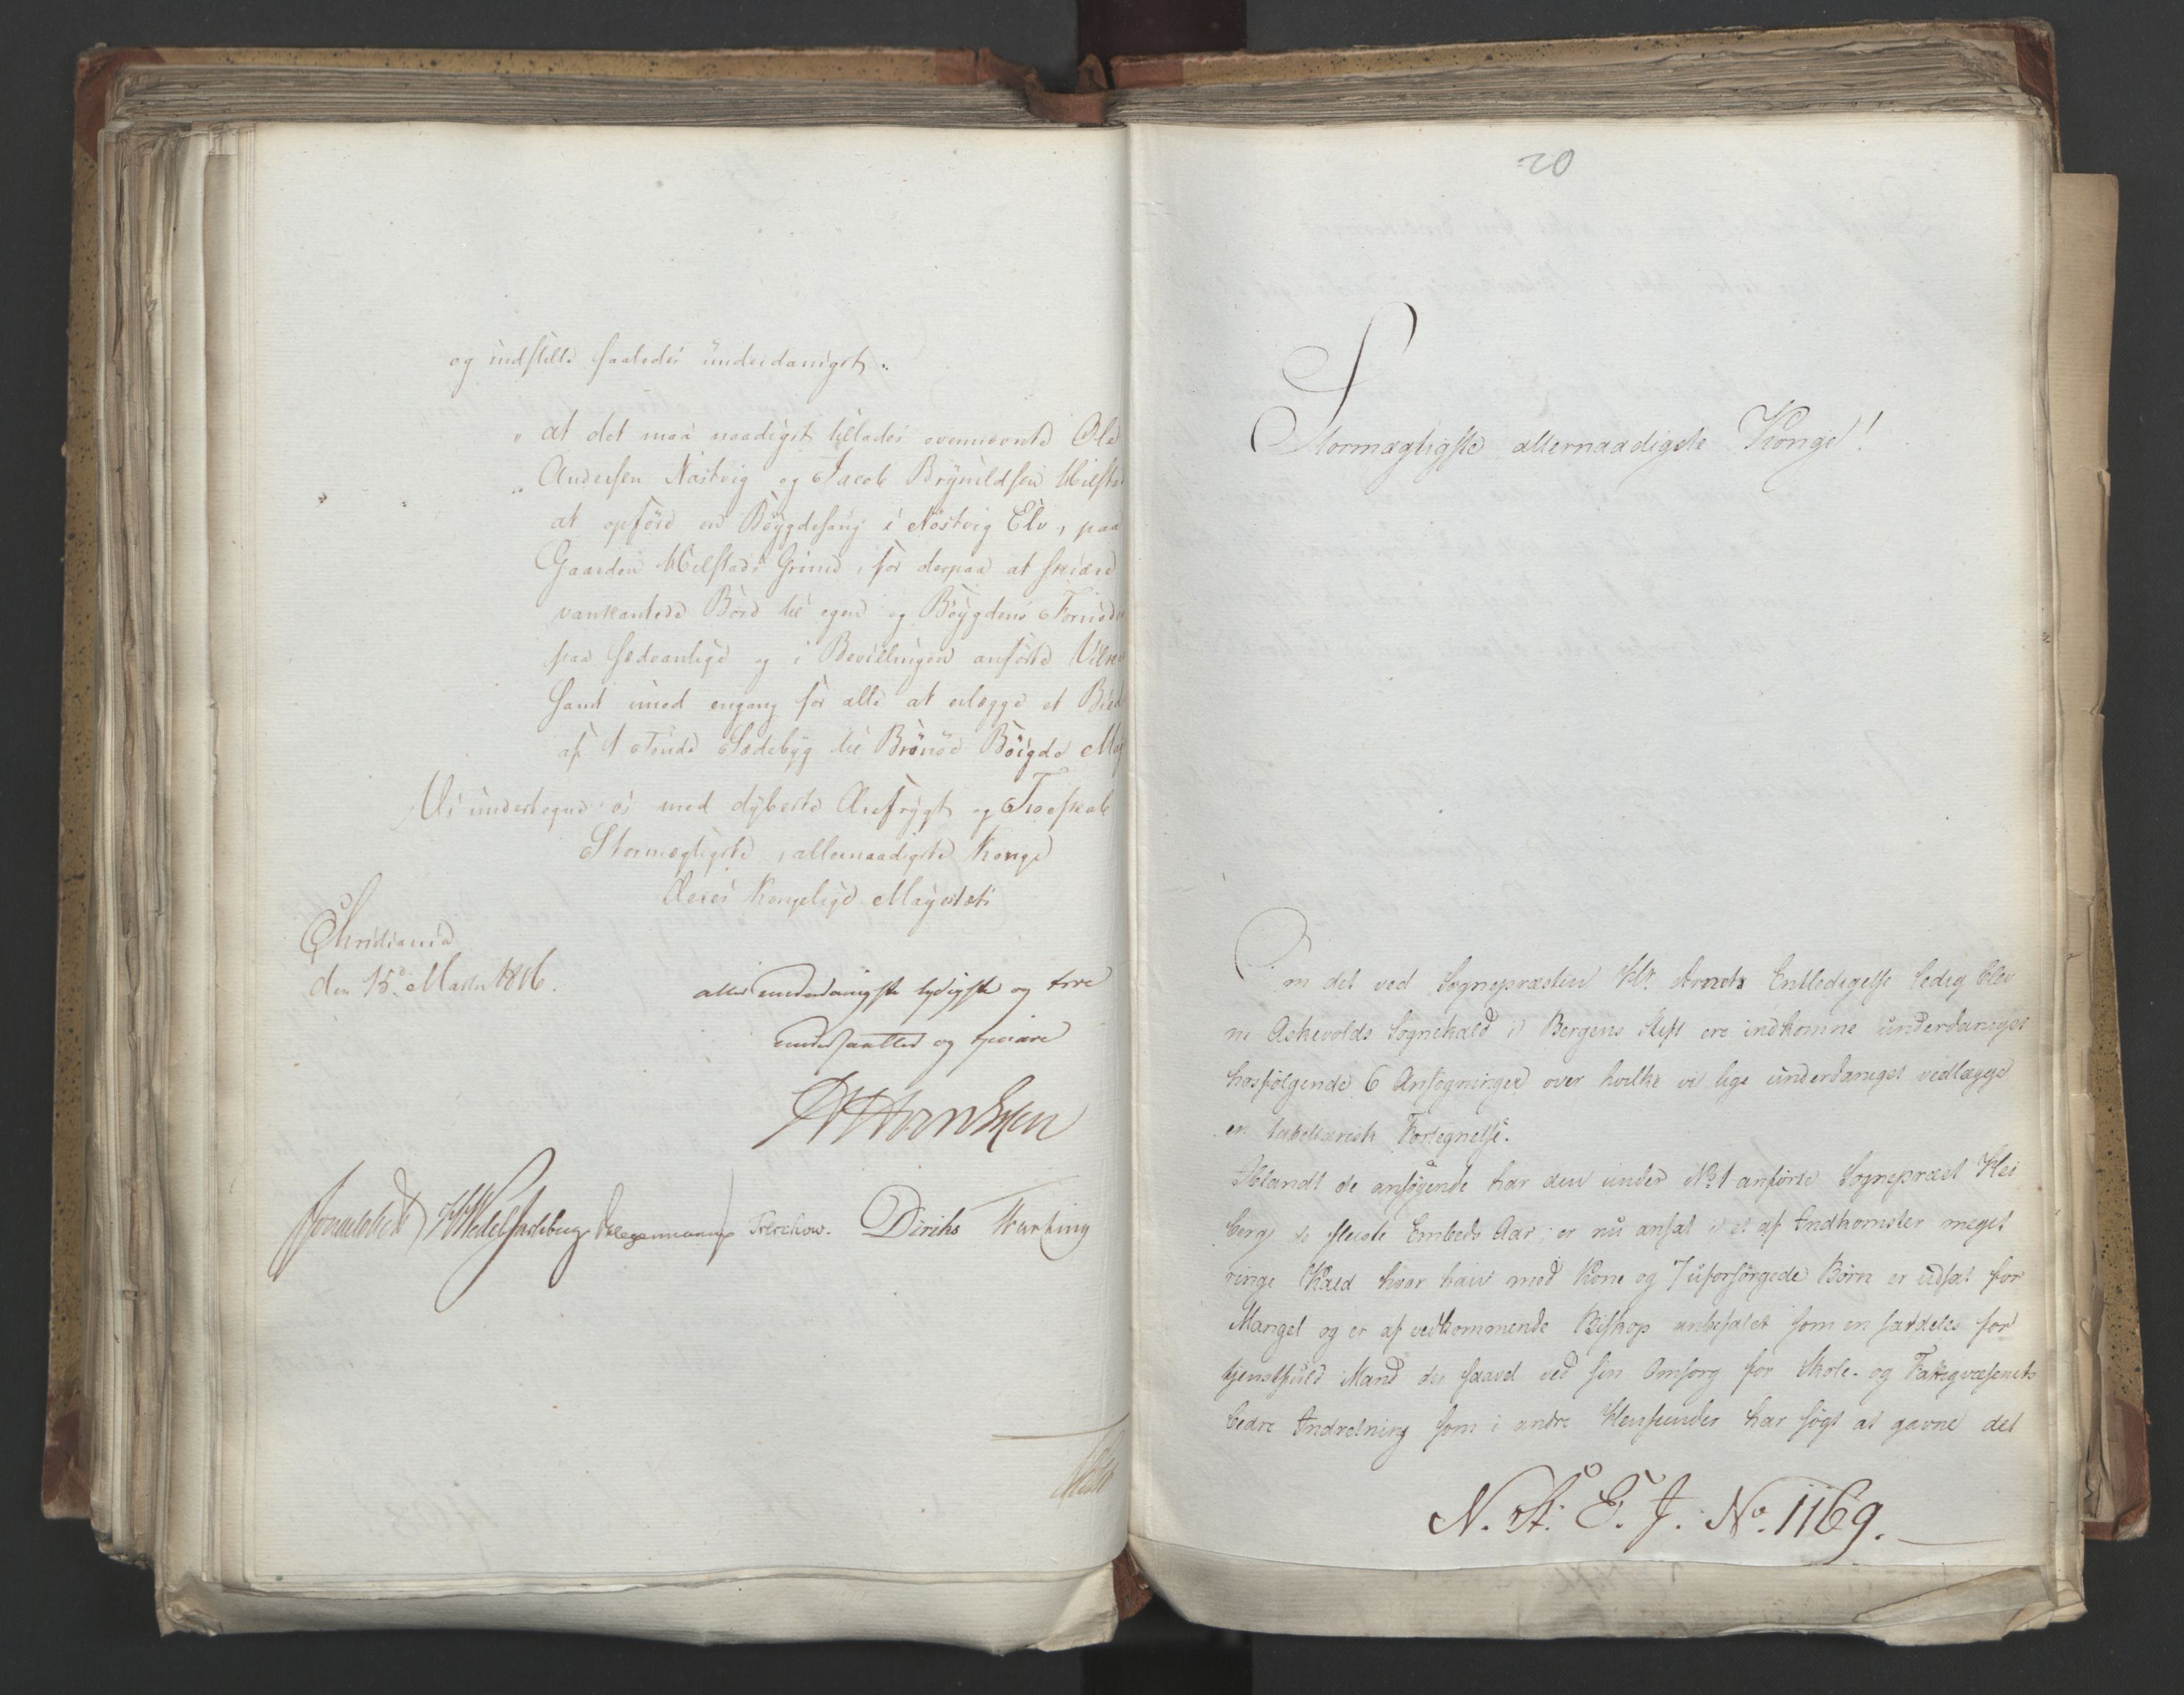 og indstille saaledes underdanigst:
" at det maa naadigst tillades ovennævnte Ole
" Andersen Nøstvig og Jacob Brynildsen
at opføre en Bøygdesaug i Nøstvig Elv, paa
Gaarden Grund, for derpaa at skiære
vankantede Bord til egen og Bøygdens
paa sædvanlige og i Bevillingen anførte
samt imod engang for alle at erlægge et
af 1 Tønde Sædebyg til Brønøe Bøigde
Vi undertegne os med dybeste Ærefrygt og Troeskab
Stormægtigste, allernaadigste Konge
Deres Kongelige Majestæts
Christiania
den 15d. Marts 1816.
allerunderdanigste lydigste og troe
undersaatter og tjenere
Sommerhielm HWedelJarlsberg Hegermann Treschow. Diriks Motzfeldt
20
Stormægtigste allernaadigste Konge!
Om det ved Sognepræsten Hr. Arnets Entledigelse ledig blev
ne Askevolds Sognekald i Bergens Stift ere indkomne underdanigst
hosfølgende 6 Ansøgninger over hvilke vi lige underdanigst vedlægge
en tabellarisk Fortegnelse.
Iblandt de ansøgende har den under No 1 anførte Sognepræst Hei
berg de fleste Embeds Aar; er nu ansat i et af Indkomster meget
ringe Kald hvor han med Kone og 7 uforsørgede Børn er udsat for
Mangel og er af vedkommende Biskop anbefalet som en særdeles for
tjenstfuld Mand der saavel ved sin Omsorg for Skole- og Fattigvæsenets
bedre Indretning som i andre Henseender har søgt at gavne det
N. A. E. J. No. 1169.